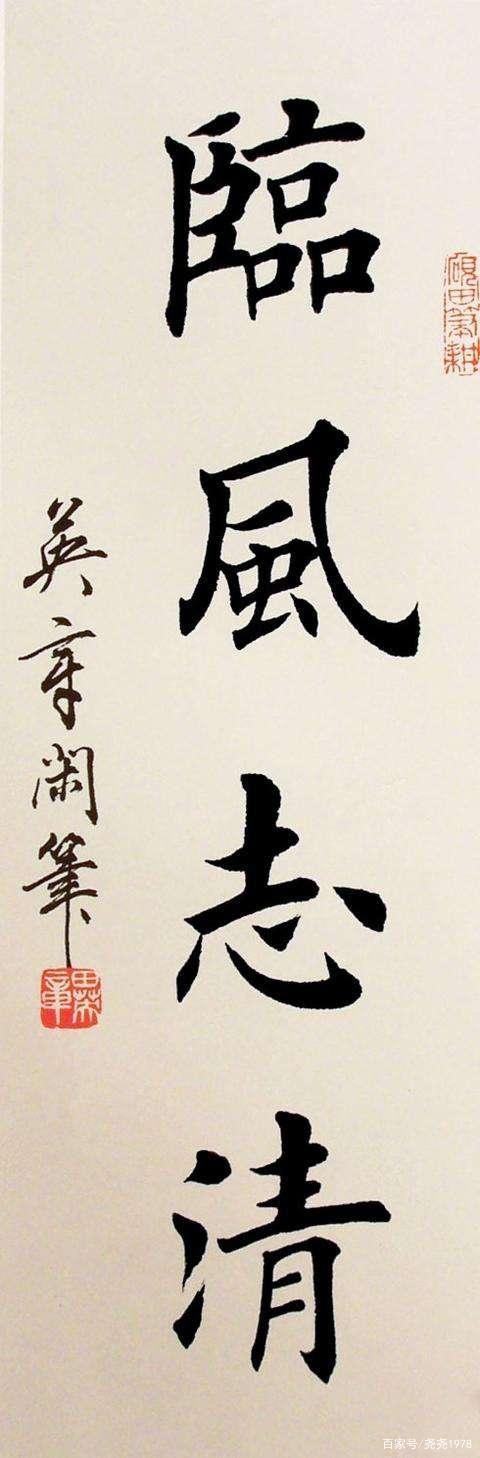 臨風志清
英章閑筆
百家号/尧尧1978